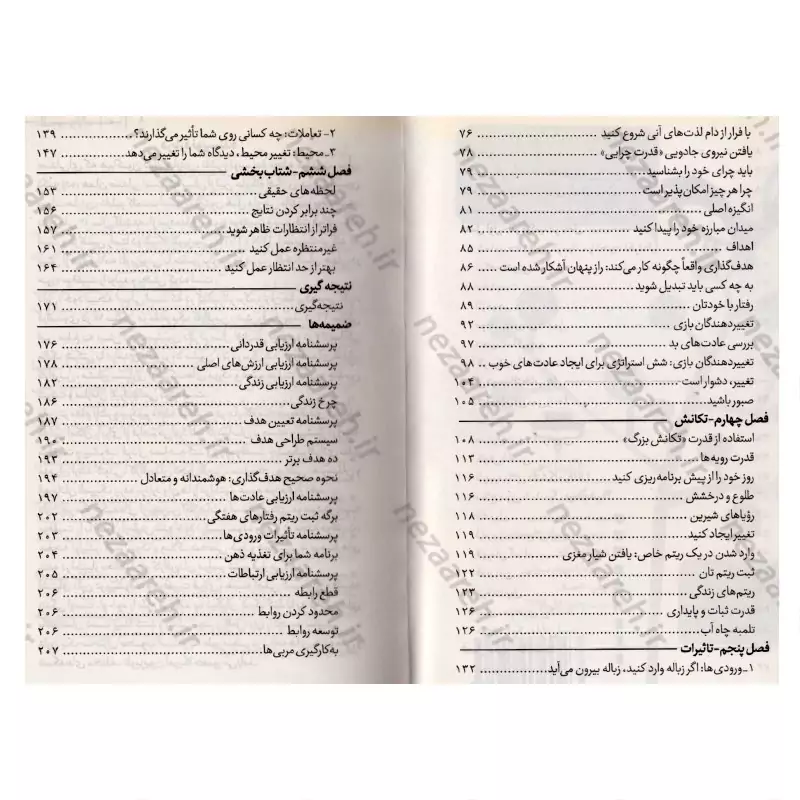 با فرار از دام لذت‌های آنی شروع کنید ........ ۷۶
یافتن نیروی جادویی «قدرت چرایی» ........ ۷۸
باید چرای خود را بشناسید ........ ۷۹
چرا هر چیز امکان‌پذیر است ........ ۷۹
انگیزه اصلی ........ ۸۱
میدان مبارزه خود را پیدا کنید ........ ۸۲
اهداف ........ ۸۵
هدف‌گذاری واقعاً چگونه کار می‌کند: راز پنهان آشکار شده است ........ ۸۶
به چه کسی باید تبدیل شوید ........ ۸۸
رفتار با خودتان ........ ۸۹
تغییردهندگان بازی ........ ۹۲
بررسی عادت‌های بد ........ ۹۷
تغییردهندگان بازی: شش استراتژی برای ایجاد عادت‌های خوب .. ۹۸
تغییر، دشوار است ........ ۱۰۴
صبور باشید ........ ۱۰۵
فصل چهارم-تکانش
استفاده از قدرت «تکانش بزرگ» ........ ۱۰۸
قدرت رویه‌ها ........ ۱۱۳
روز خود را از پیش برنامه ریزی کنید ........ ۱۱۶
طلوع و درخشش ........ ۱۱۶
رؤیاهای شیرین ........ ۱۱۸
تغییر ایجاد کنید ........ ۱۱۹
وارد شدن در یک ریتم خاص: یافتن شیار مغزی ........ ۱۱۹
ثبت ریتم تان ........ ۱۲۲
ریتم‌های زندگی ........ ۱۲۳
قدرت ثبات و پایداری ........ ۱۲۶
تلمبه چاه آب ........ ۱۲۶
فصل پنجم-تاثیرات
۱_ورودی‌ها: اگر زباله وارد کنید، زباله بیرون می‌آید ........ ۱۳۲
۲- تعاملات: چه کسانی روی شما تأثیر می‌گذارند؟ ........ ۱۳۹
۳_محیط: تغییر محیط، دیدگاه شما را تغییر می‌دهد: ........ ۱۴۷
فصل ششم-شتاب‌بخشی
لحظه‌های حقیقی ........ ۱۵۳
چند برابر کردن نتایج ........ ۱۵۶
فراتر از انتظارات ظاهر شوید ........ ۱۵۷
غیرمنتظره عمل کنید ........ ۱۶۱
بهتر از حد انتظار عمل کنید ........ ۱۶۴
نتیجه گیری
نتیجه‌گیری ........ ۱۷۱
ضمیمه‌ها
پرسشنامه ارزیابی قدردانی ........ ۱۷۶
پرسشنامه ارزیابی ارزش‌های اصلی ........ ۱۷۸
پرسشنامه ارزیابی زندگی ........ ۱۸۲
چرخ زندگی ........ ۱۸۶
پرسشنامه تعیین هدف ........ ۱۸۷
سیستم طراحی هدف ........ ۱۹۰
ده هدف برتر ........ ۱۹۳
نحوه صحیح هدف‌گذاری: هوشمندانه و متعادل ........ ۱۹۴
پرسشنامه ارزیابی عادت‌ها ........ ۱۹۷
برگه ثبت ریتم رفتارهای هفتگی ........ ۲۰۲
پرسشنامه تأثیرات ورودی‌ها ........ ۲۰۳
برنامه شما برای تغذیه ذهن ........ ۲۰۴
پرسشنامه ارزیابی ارتباطات ........ ۲۰۵
قطع رابطه ........ ۲۰۶
محدود کردن روابط ........ ۲۰۶
توسعه روابط ........ ۲۰۶
به‌کارگیری مربی‌ها ........ ۲۰۷
nezaareh.ir